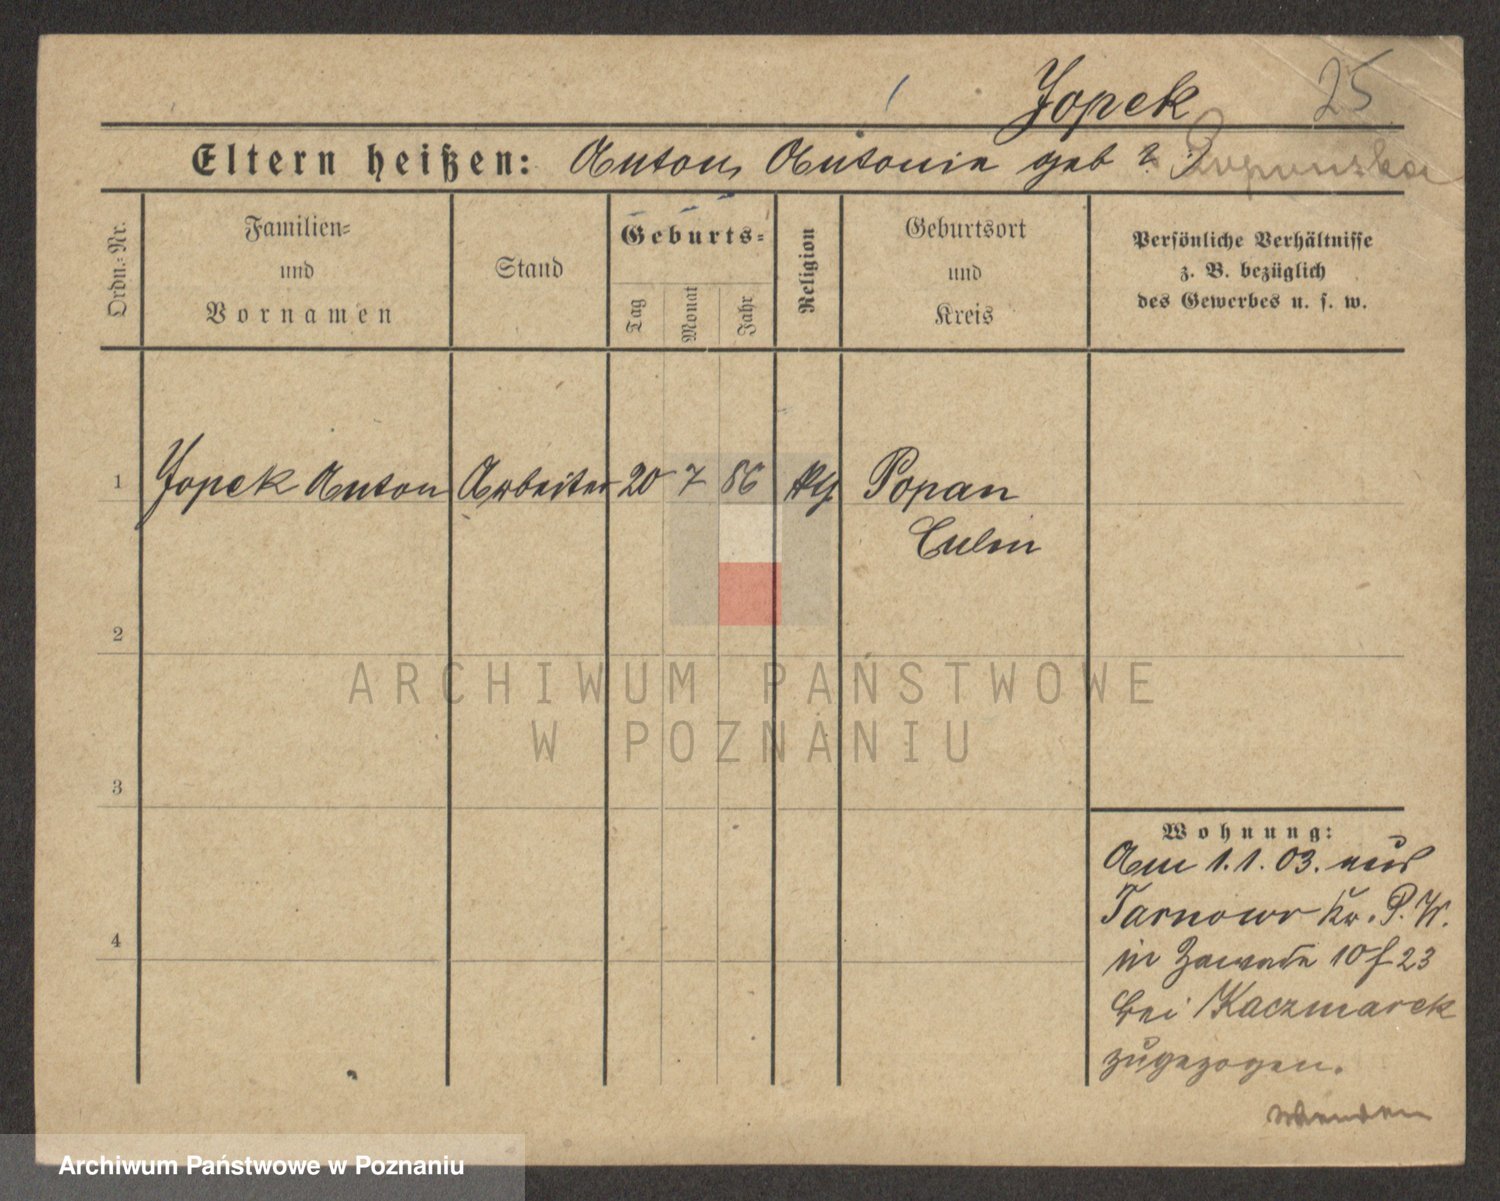 Jopek 25
Eltern heißen: Anton, Antonie geb ?
Ordn.-Nr.
Familien-
und
Vornamen
Stand
Geburts-
Tag
Monat
Jahr
Religion
Geburtsort
und
Kreis
Persönliche Verhältnisse
z. B. bezüglich
des Gewerbes u. s. w.
1 Jopek Anton Arbeiter 20 7 86 Popan
Culm
2
ARCHIWUM PAŃSTWOWE
W POZNANIU
3
Wohnung:
Am 1.1.03. aus
Tarnowo Kr. P. W.
in Zawade 10 f 23
bei Kaczmarek
4
zugezogen.
wenden
Archiwum Państwowe w Poznaniu